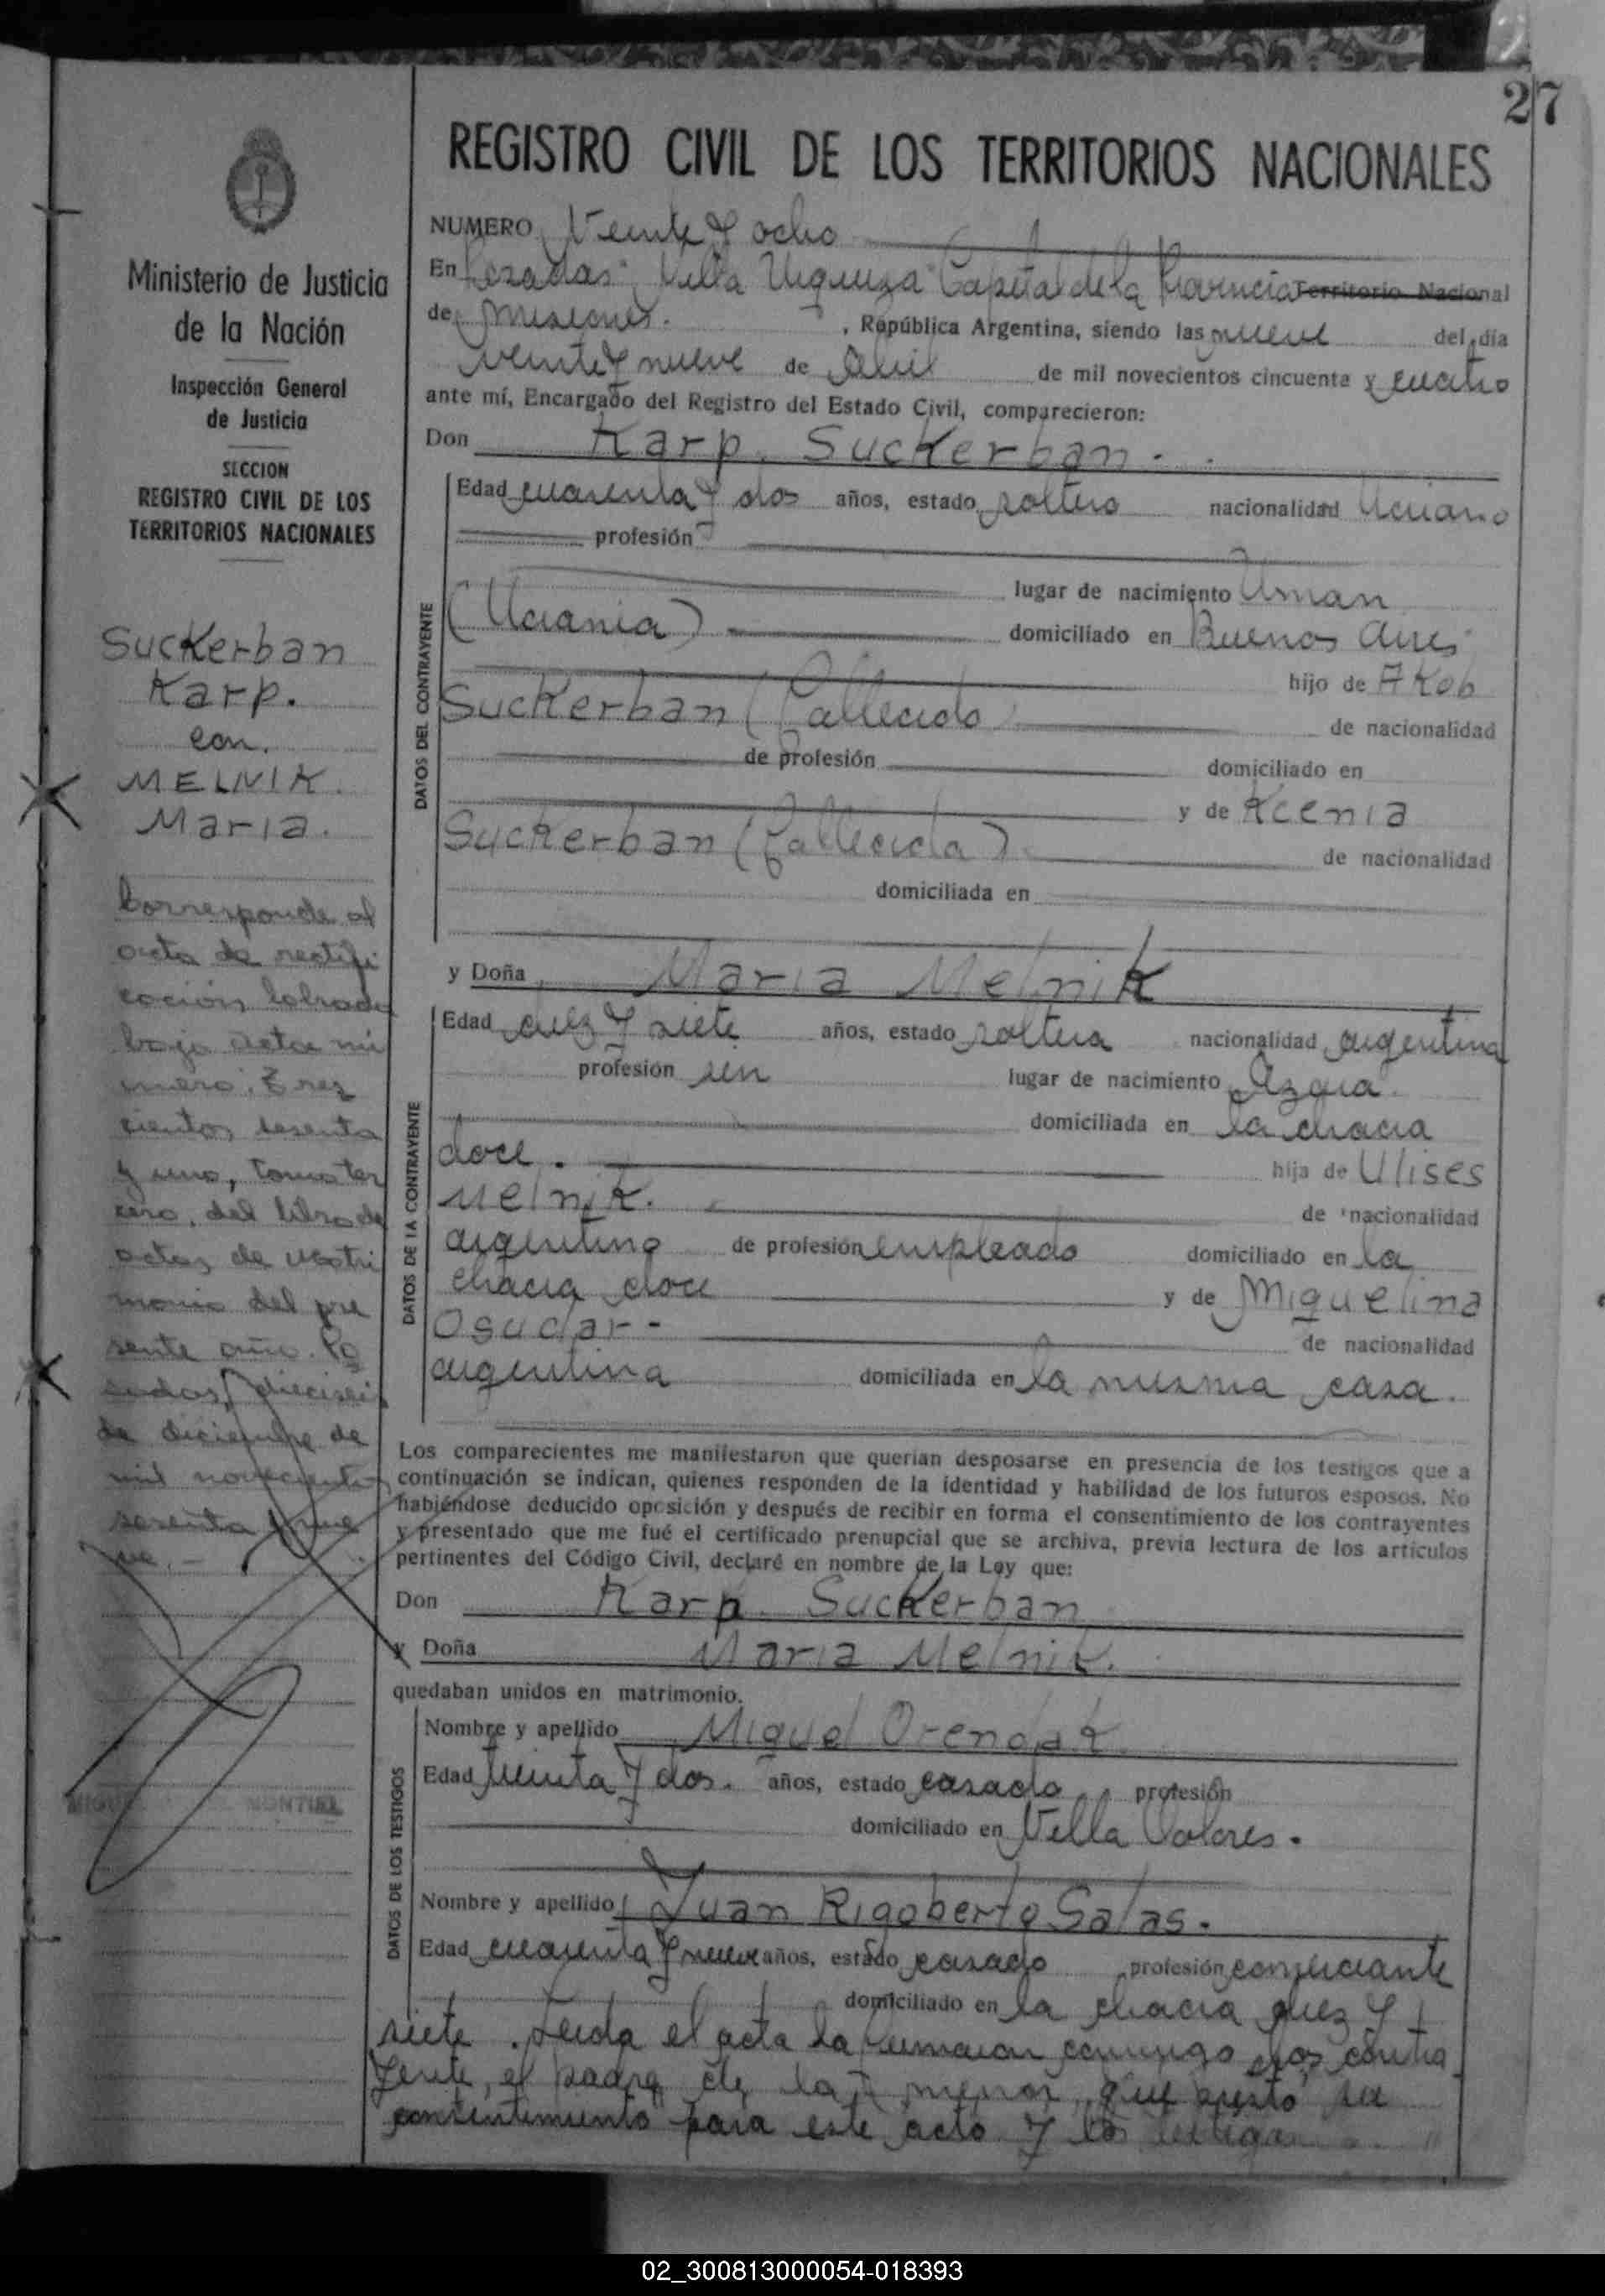 27
REGISTRO CIVIL DE LOS TERRITORIOS NACIONALES
Ministerio de Justicia
de la Nación
Inspección General
de Justicia
SECCION
REGISTRO CIVIL DE LOS
TERRITORIOS NACIONALES
Suckerban
Karp.
con.
MELNIK.
Maria.
Corresponde al
acta de rectifi
cación labrada
bajo acta nú
mero: Tres
cientos sesenta
y uno, tomo ter
cero, del libro de
actas de matri
monio del pre
sente año. Po
sadas, dieciseis
de diciembre de
mil novecientos
sesenta y nue
ve.-
MONTIEL
NUMERO Veinte y ocho
En Posadas "Villa Urquiza" Capital de la Provincia Territorio Nacional
de Misiones. , República Argentina, siendo las nueve del día
veinte y nueve de Abril de mil novecientos cincuenta y cuatro
ante mí, Encargado del Registro del Estado Civil, comparecieron:
Don Karp Suckerban.
DATOS DEL CONTRAYENTE
Edad cuarenta y dos años, estado soltero nacionalidad Ucriano
profesión
lugar de nacimiento Uman
(Ucrania) domiciliado en Buenos Aires
hijo de Akob
Suckerban (fallecido) de nacionalidad
de profesión domiciliado en
y de Kcenia
Suckerban (fallecida) de nacionalidad
domiciliada en
y Doña Maria Melnik
DATOS DE LA CONTRAYENTE
Edad diez y siete años, estado soltera nacionalidad argentina
profesión sin lugar de nacimiento Azara.
domiciliada en la chacra
doce. hija de Ulises
Melnik. de nacionalidad
argentino de profesión empleado domiciliado en la
chacra doce y de Miguelina
Osudar- de nacionalidad
argentina domiciliada en la misma casa.
Los comparecientes me manifestaron que querían desposarse en presencia de los testigos que a
continuación se indican, quienes responden de la identidad y habilidad de los futuros esposos. No
habiéndose deducido oposición y después de recibir en forma el consentimiento de los contrayentes
y presentado que me fué el certificado prenupcial que se archiva, previa lectura de los artículos
pertinentes del Código Civil, declaré en nombre de la Ley que:
Don Karp Suckerban
y Doña Maria Melnik.
quedaban unidos en matrimonio.
DATOS DE LOS TESTIGOS
Nombre y apellido Miguel
Edad treinta y dos. años, estado casado, profesión
domiciliado en Villa Dolores.
Nombre y apellido Juan Rigoberto Salas.
Edad cuarenta y nueve años, estado casado profesión comerciante
domiciliado en la chacra diez y
siete. Leida el acta la firmaron conmigo los contra
yente, el padre de la menor, que presto su
consentimiento para este acto y los testigos
02_300813000054-018393